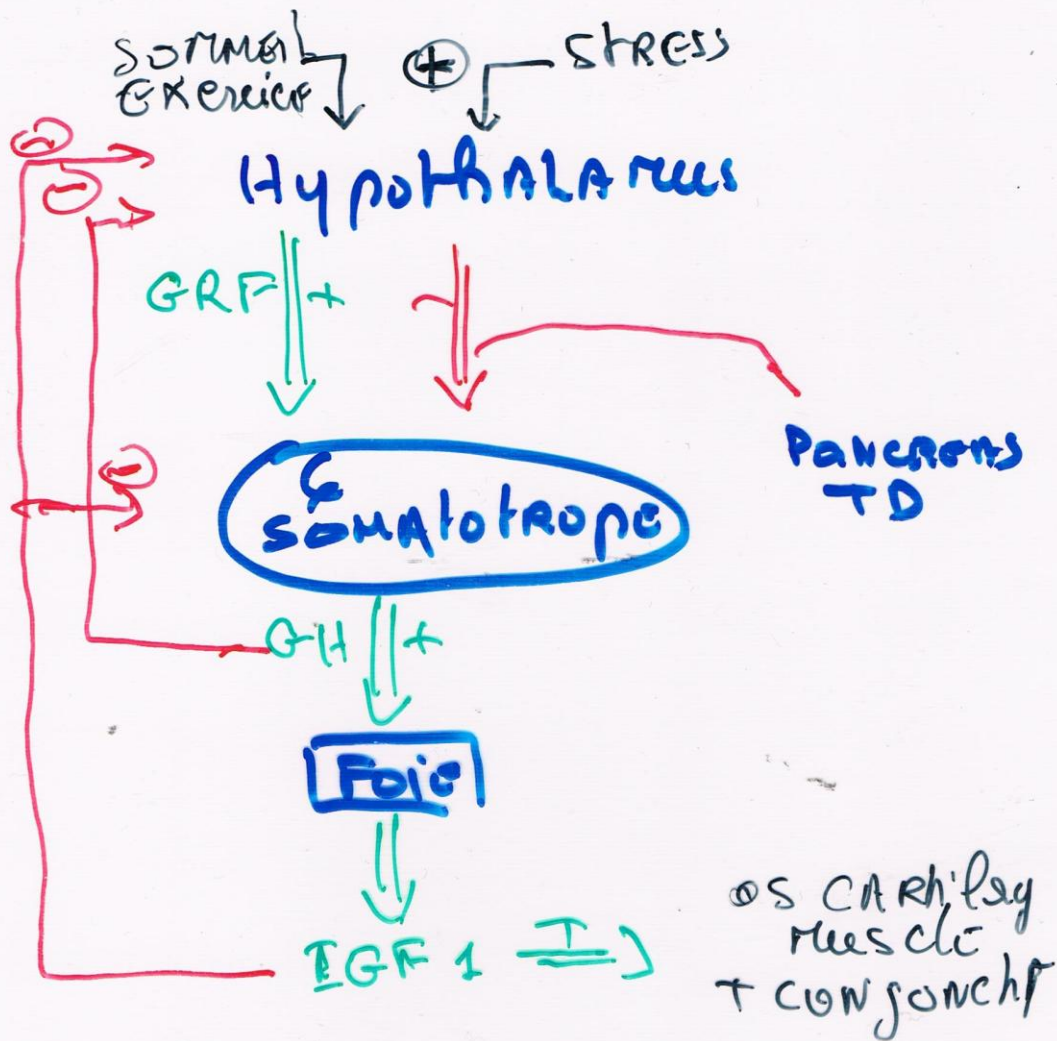 SOMMEIL
EXERCICE
+
STRESS
-
-
HypothALAMus
GRF
+
-
-
PANCREAS
TD
SOMAtotROpe
GH
+
Foie
IGF 1
+
OS CARtilag
muscle
T CONjONCtif